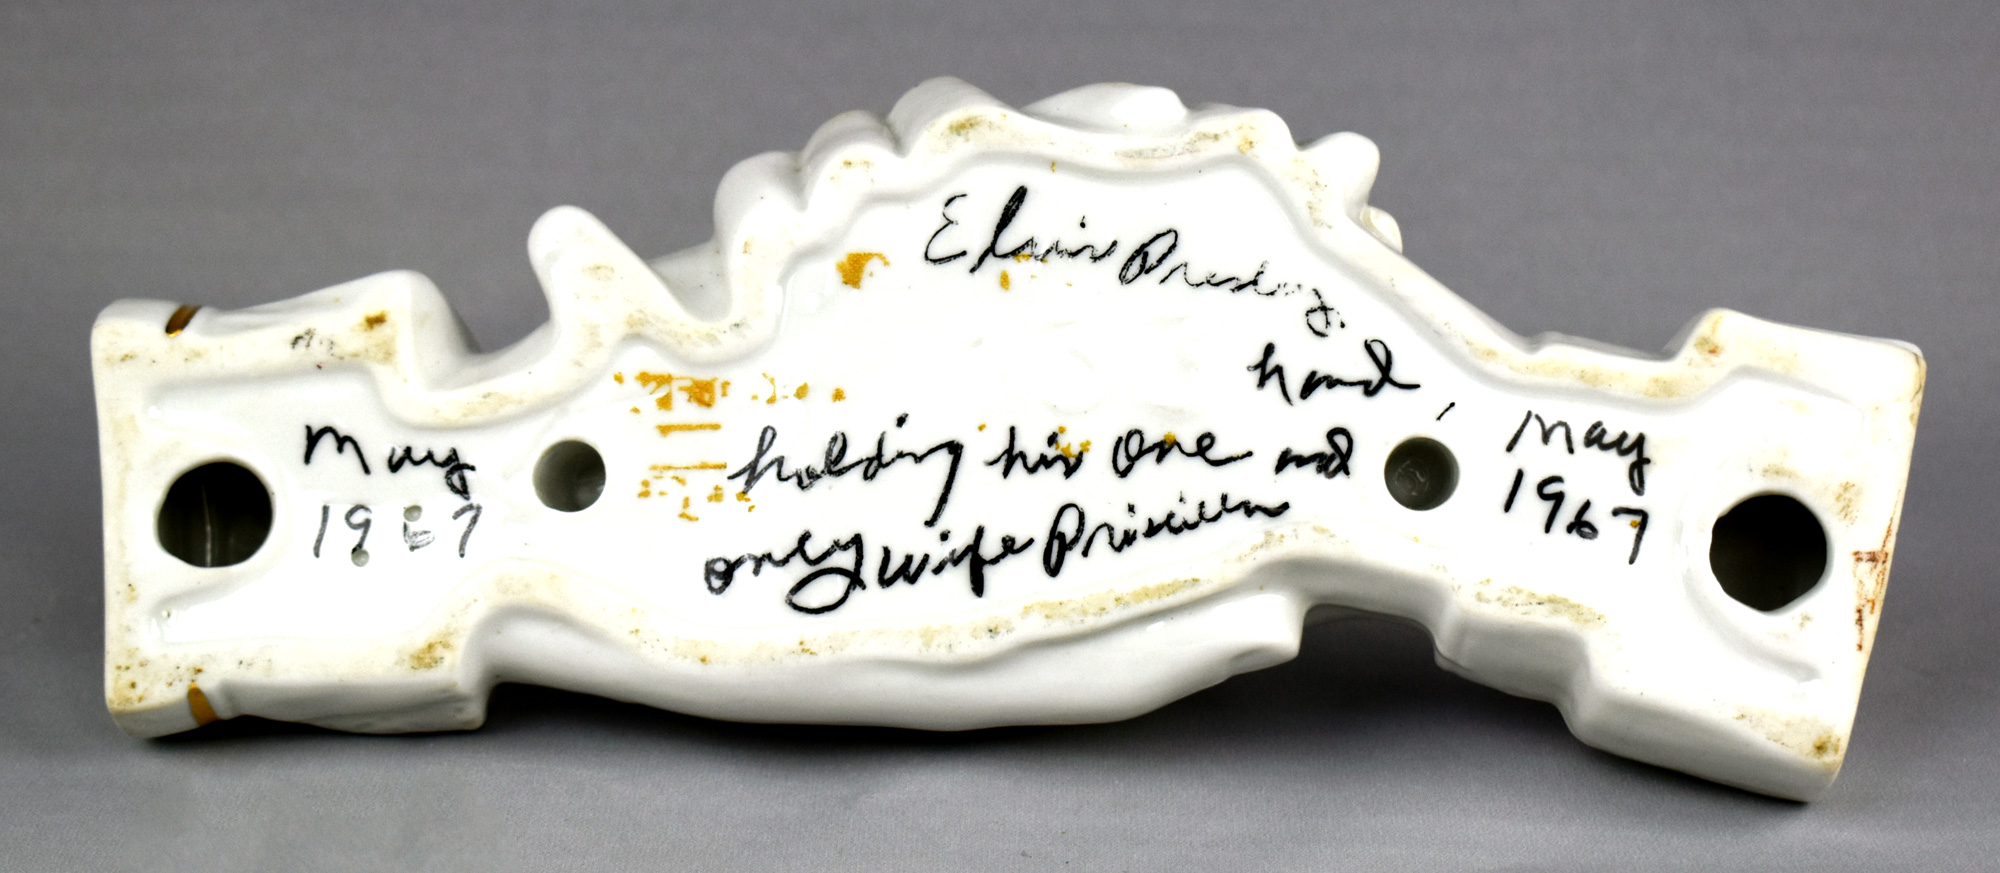 May
1967
Elvis Presley
hand,
holding his one and
only wife Priscilla
May
1967